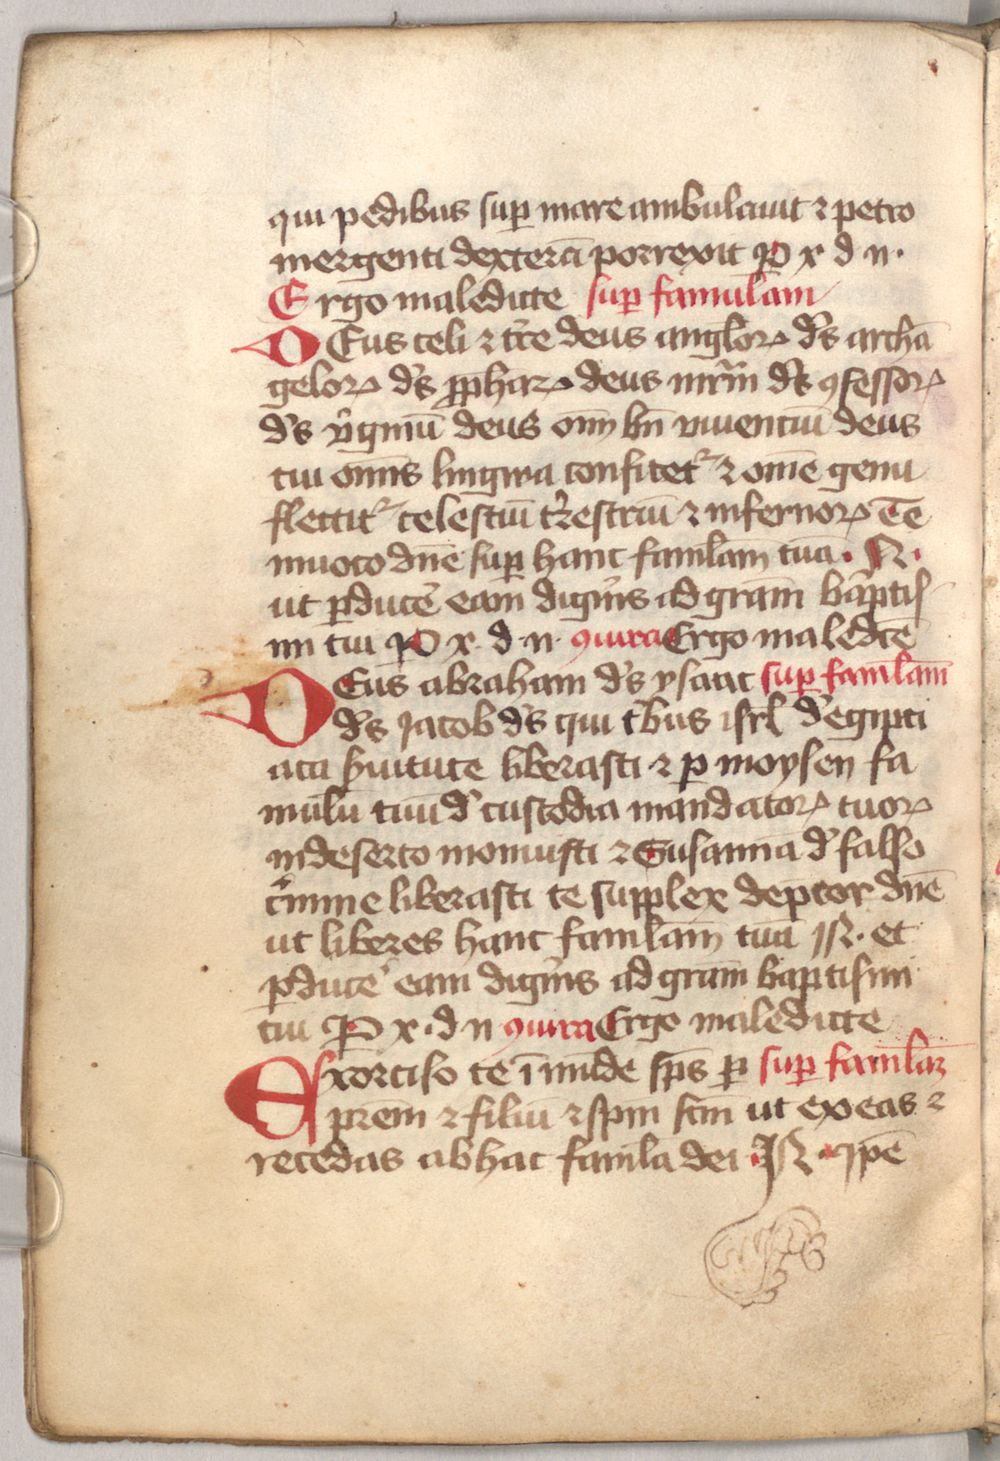 qui pedibus sup mare ambulauit ⁊ petro
mergenti dexterā porrexit P x d n.
Ergo maledicte sup famulam
DEus celi ⁊ tr̄e deus anglorꝝ ds̄ archā
gelorꝝ ds̄ ꝓphaꝝ deus mr̄m ds̄ ꝯfessorꝝ
ds̄ v̓ginū deus om̄ bn̄ viuentiū deus
cui om̄s lingwa confitetr ⁊ om̄e genu
flectitr celestiū tr̄estriū ⁊ infernorꝝ Te
inuoco dn̄e sup hanc famlam tuā. N.
ut ꝑducē eam dign̄is ad gram̄ baptis
mi tui P x. d. n. ꝯiura Ergo maledc̄e
DEus abraham ds̄ ysaac sup famlam
ds̄ Jacob ds̄ qui t̓bus isrl̄ d̓ egipti
aca ẜuitute liberasti ⁊ ꝑ moysen fa
mulū tuū d̓ custodia mandatorꝝ tuorꝝ
indeserto monuisti ⁊ Susannā d̓ falso
c̓mine liberasti te supplex dep̄cor dn̄e
ut liberes hanc famlam tuā N. et
ꝑducē eam dign̄is ad gram̄ baptismi
tui P x. d n ꝯiura Ergo maledicte
Exorciso te īmūde sp̄s ꝑ sup famlam
prem̄ ⁊ filiū ⁊ spm̄ scm̄ ut exeas ⁊
recedas ab hac famla dei. N. ip̄e